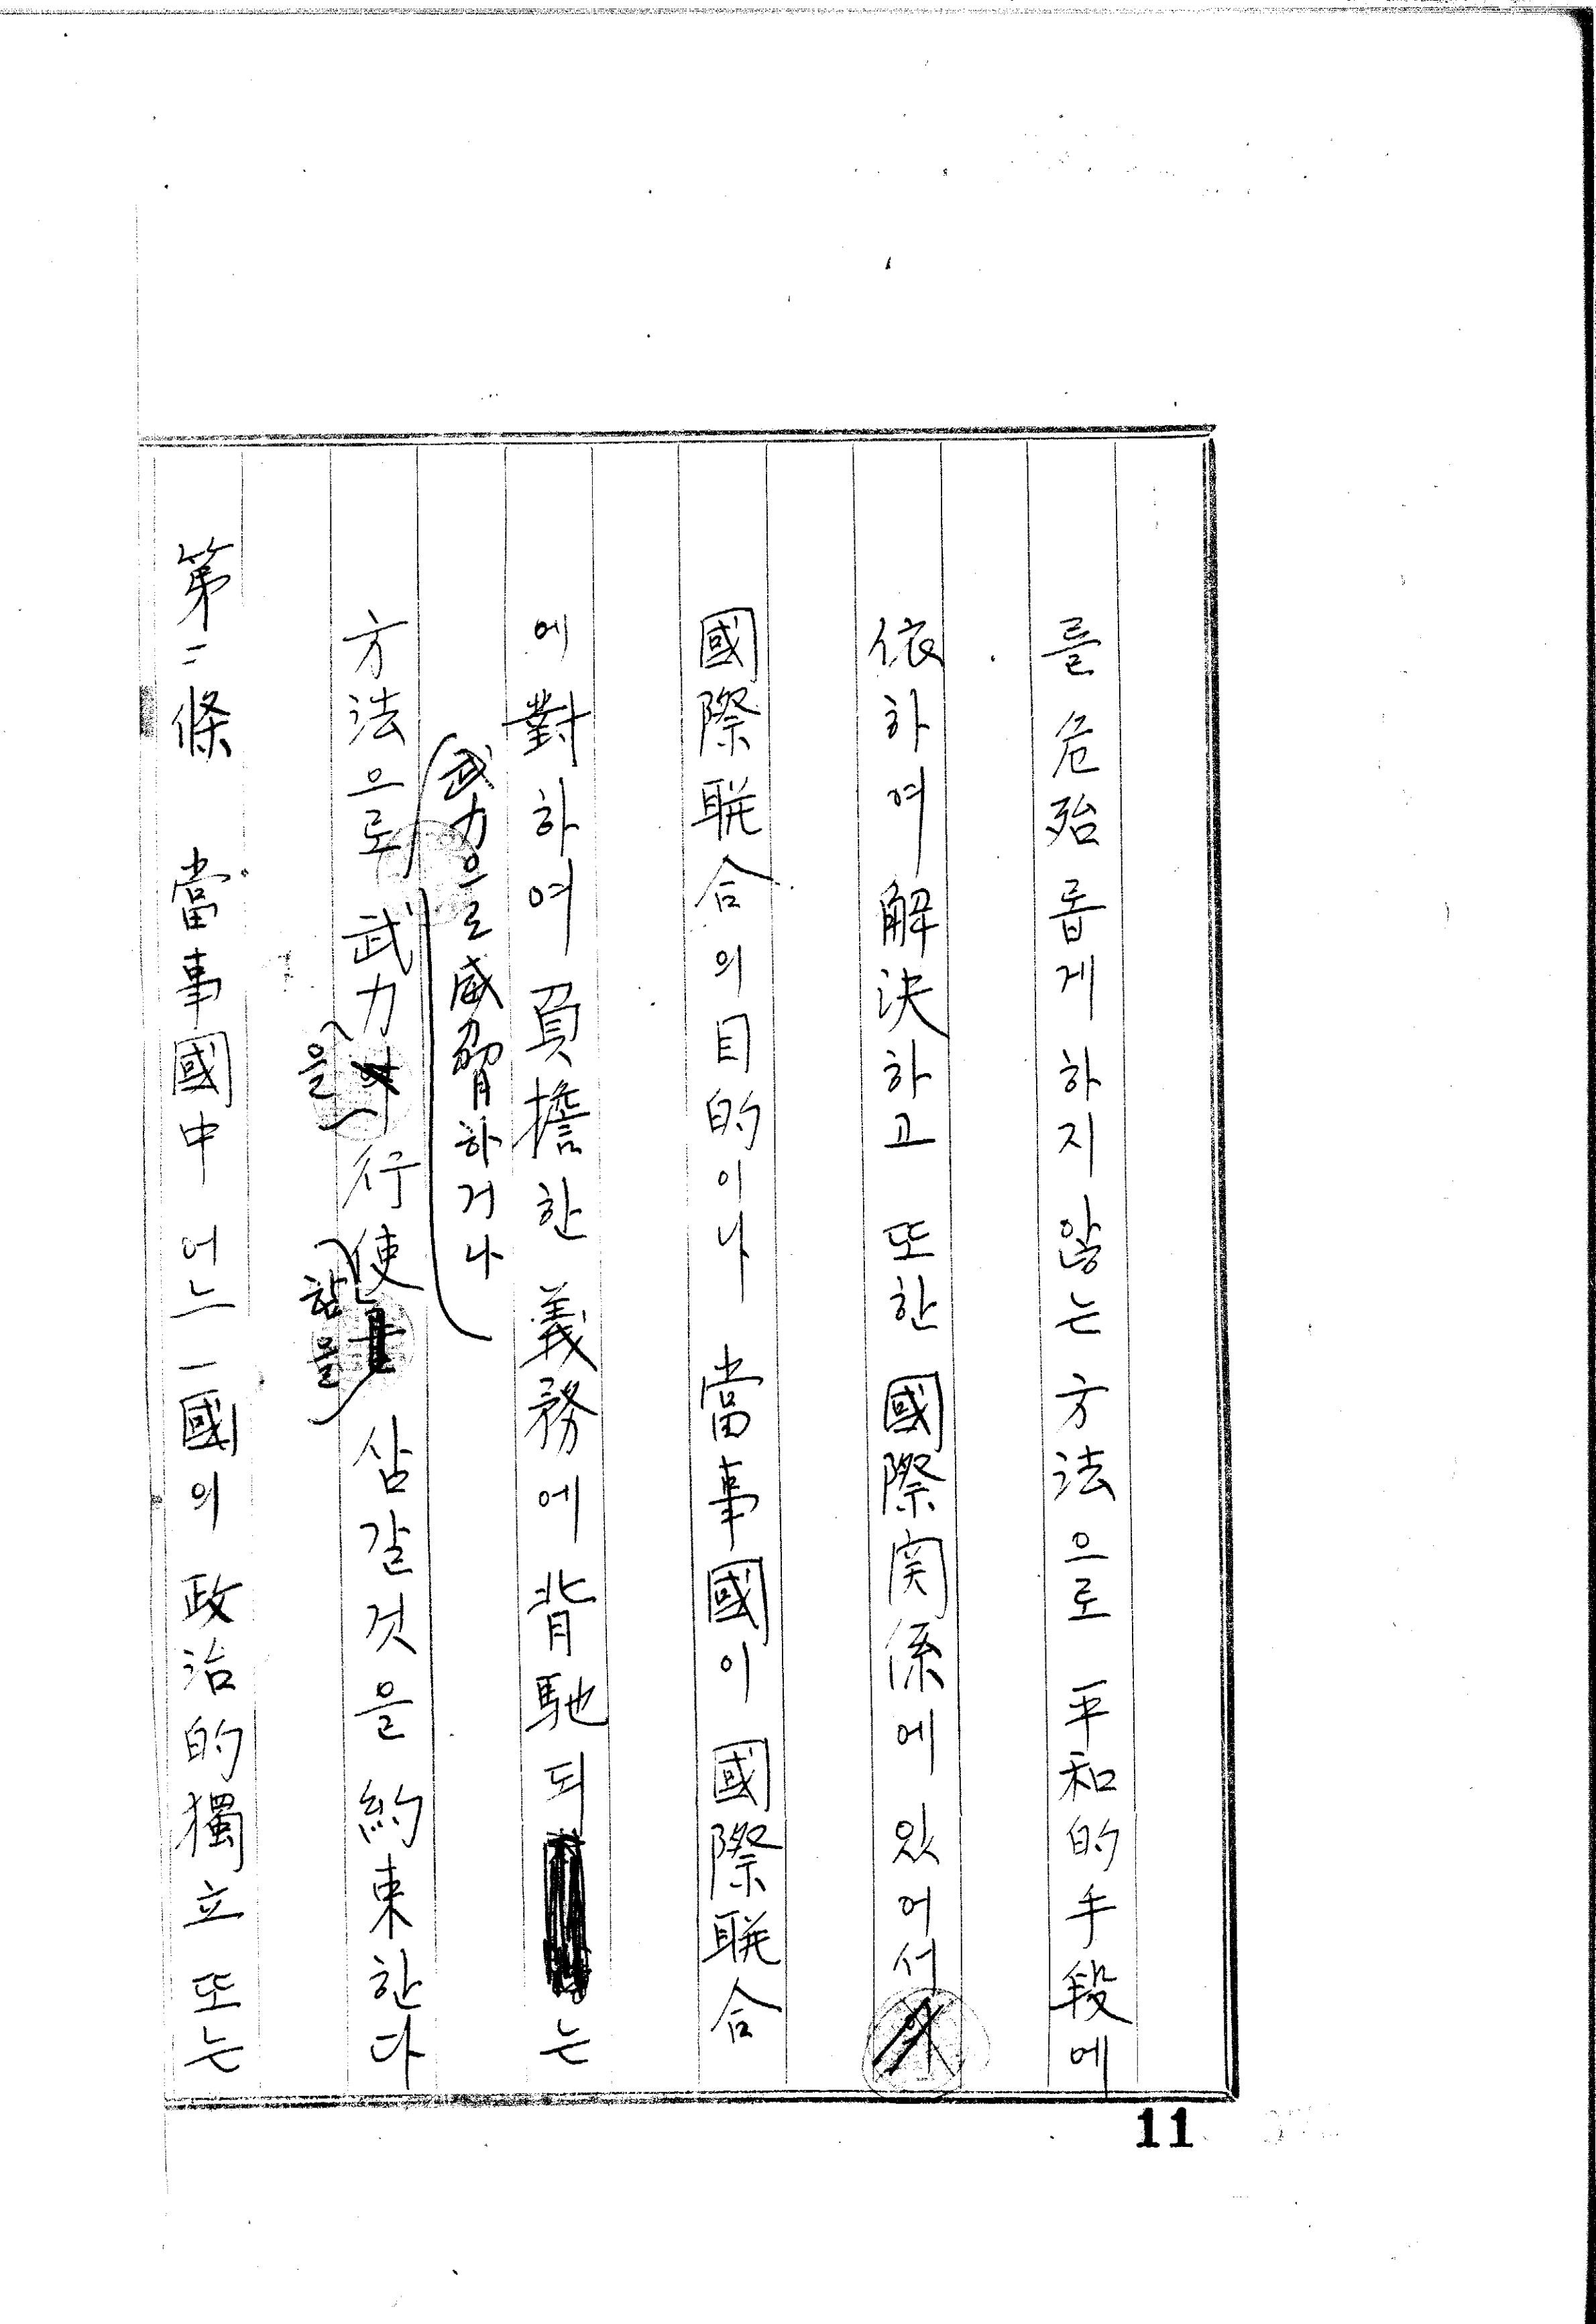 를 危殆롭게 하지 않는 方法으로 平和的 手段에
依하여 解決하고 또한 國際関係에 있어서
國際聯合의 目的이나 當事國이 國際聯合
에 對하여 負擔한 義務에 背馳되는
武力으로 威脅하거나
方法으로 武力 行使 삼갈것을 約束한다
을
함을
第二條 當事國中 어느 一國의 政治的 獨立 또는
11